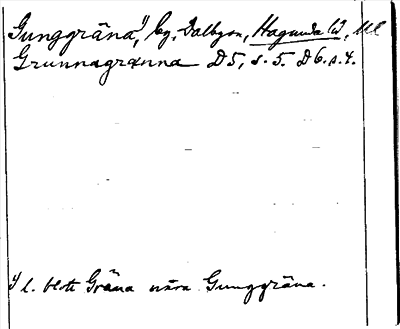 Gunggräna,¹⁾ by, Dalbyson, Hagunda hd, Upl
Grunnagrænna D5, s. 5. D6. s. 4.
¹⁾ l. blott Gräna nära Gunggräna.